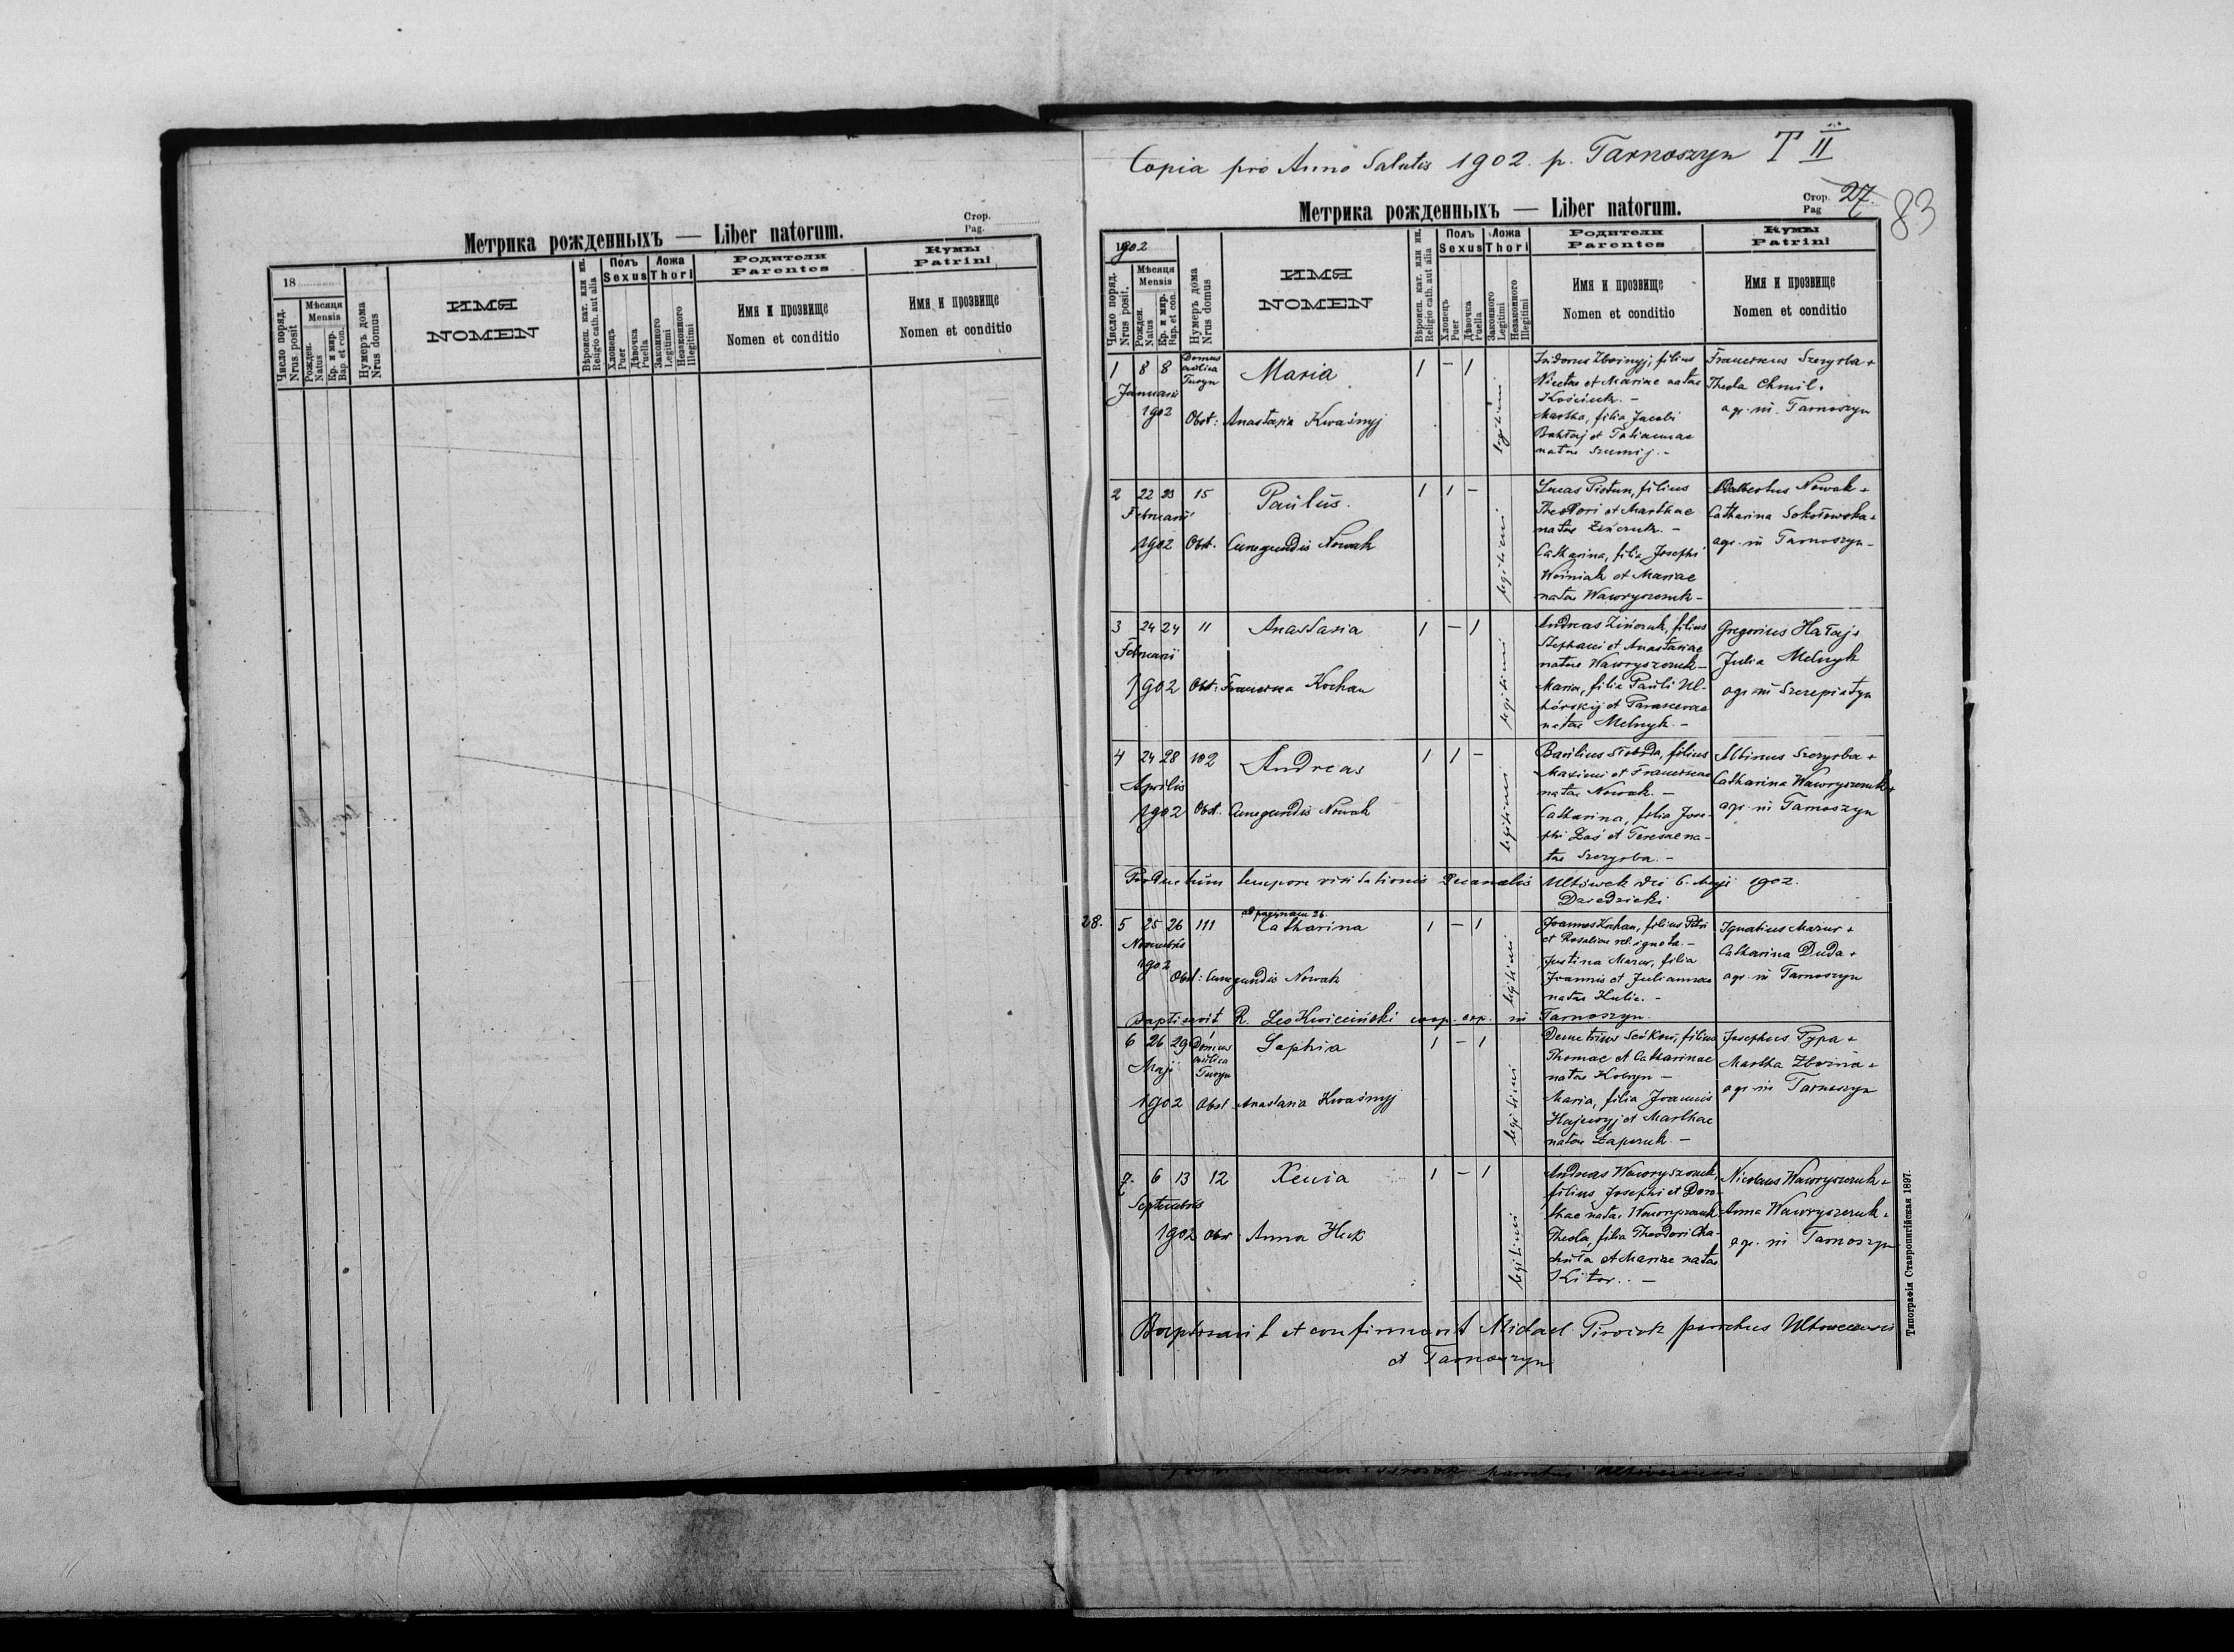 Стор.
Pag.
Метрика рожденныхъ — Liber natorum.
18
Число поряд.
Nrus. posit
Мѣсяця
Mensis
Рожден.
Natus
Кр. и мир.
Bap. et con.
Нумеръ дома
Nrus domus
ИМЯ
NOMEN
Вѣроисп. кат. или ин.
Religio cath. aut alia
Полъ
Sexus
Хлопець
Puer
Дѣвочка
Puella
Ложа
Thori
Законного
Legitimi
Незаконного
Illegitimi
Родители
Parentes
Имя и прозвище
Nomen et conditio
Кумы
Patrini
Имя и прозвище
Nomen et conditio
Copia pro Anno Salutis 1902. p. Tarnoszyn T II
Стор. 27.
Pag
83
Метрика рожденныхъ — Liber natorum.
1902
Число поряд.
Nrus posit.
Мѣсяця
Mensis
Рожден.
Natus
Кр. и мир.
Bap. et con.
Нумеръ дома
Nrus domus
ИМЯ
NOMEN
Вѣроисп. кат. или ин.
Religio cath. aut alia
Полъ
Sexus
Хлопець
Puer
Дѣвочка
Puella
Ложа
Thori
Законного
Legitimi
Незаконного
Illegitimi
Родители
Parentes
Имя и прозвище
Nomen et conditio
Кумы
Patrini
Имя и прозвище
Nomen et conditio
1 8 8 Domus aulica Turyn Maria 1 - 1 legitimi
Januarii
1902 Obst: Anastasia Kwaśnyj
Isidorus Zbоinyj, filius
Nicetae et Mariae natae
Kościuk. -
Martha, filia Jacobi
Bahłaj et Tatiannae
natae Szumij. -
Franciscus Szczyrba +
Thecla Chmil.
agr. in Tarnoszyn
2 22 23 15 Paulus. 1 1 - legitimi
Februarii
1902 Obst. Cunegundis Nowak
Lucas Pistun, filius
Theodori et Marthae
natae Zińczuk. -
Catharina, filia Josephi
Woźniak et Mariae
natae Wawryszczuk -
Adalbertus Nowak +
Catharina Sokołowska +
agr. in Tarnoszyn -
3 24 24 11 Anastasia 1 - 1 legitimi
Februarii
1902 Obst: Francisca Kochan
Andreas Zińczuk, filius
Stephani et Anastasiae
natae Wawryszczuk -
Maria, filia Pauli Uhl-
et Parascevae
natae Melnyk. -
Gregorius Hałaj +
Julia Melnyk
agr. in Szczepiatyn
4 24 28 102 Andreas 1 1 - legitimi
Aprilis
1902 Obst. Cunegundis Nowak
Basilius Słoboda, filius
Maximi et Franciscae
natae Nowak. -
Catharina, filia Jose-
phi Łoś et Teresae na-
tae Szczyrba. -
Albinus Szczyrba +
Catharina Wawryszczuk +
agr. in Tarnoszyn
Productum tempore visitationis Decanalis Uhłówek die 6. Maji 1902.
28. 5 25 26 111 ad paginam 26. Catharina 1 - 1 legitimi
Novembris
1902
Obst: Cunegundis Nowak
Joannes Kahan, filius Petri
et Rosaliae rel. ignota. -
Justina Mazur, filia
Joannis et Juliannae
natae Kulic. -
Ignatius Mazur +
Catharina Duda +
agr. in Tarnoszyn
Baptisavit R. Leo Kwieciński coop. exp. in Tarnoszyn.
6 26 29 Domus aulica Turyn Sophia 1 - 1 legitimi
Maji
1902 Obst Anastasia Kwaśnyj
Demetrius filius
Thomae et Catharinae
natae Kobryn -
Maria, filia Joannis
Hajewyj et Marthae
natae Łapczuk. -
Josephus Pypa +
Martha Zboina +
agr. in Tarnoszyn
7. 6 13 12 Xenia 1 - 1 legitimi
Septembris
1902 Obst Anna Huk
Andreas Wawryszczuk,
filius Josephi et Doro-
theae natae Wawryszczuk
Thecla, filia Theodori Cha-
chuła et Mariae natae
Kitor. . -
Nicolaus Wawryszczuk +
Anna Wawryszczuk +
agr. in Tarnoszyn
Baptisavit et confirmavit Michael Pirożek parochus Uhłowecensis
et Tarnoszyn
parochus
Типографія Ставропигійская 1897.